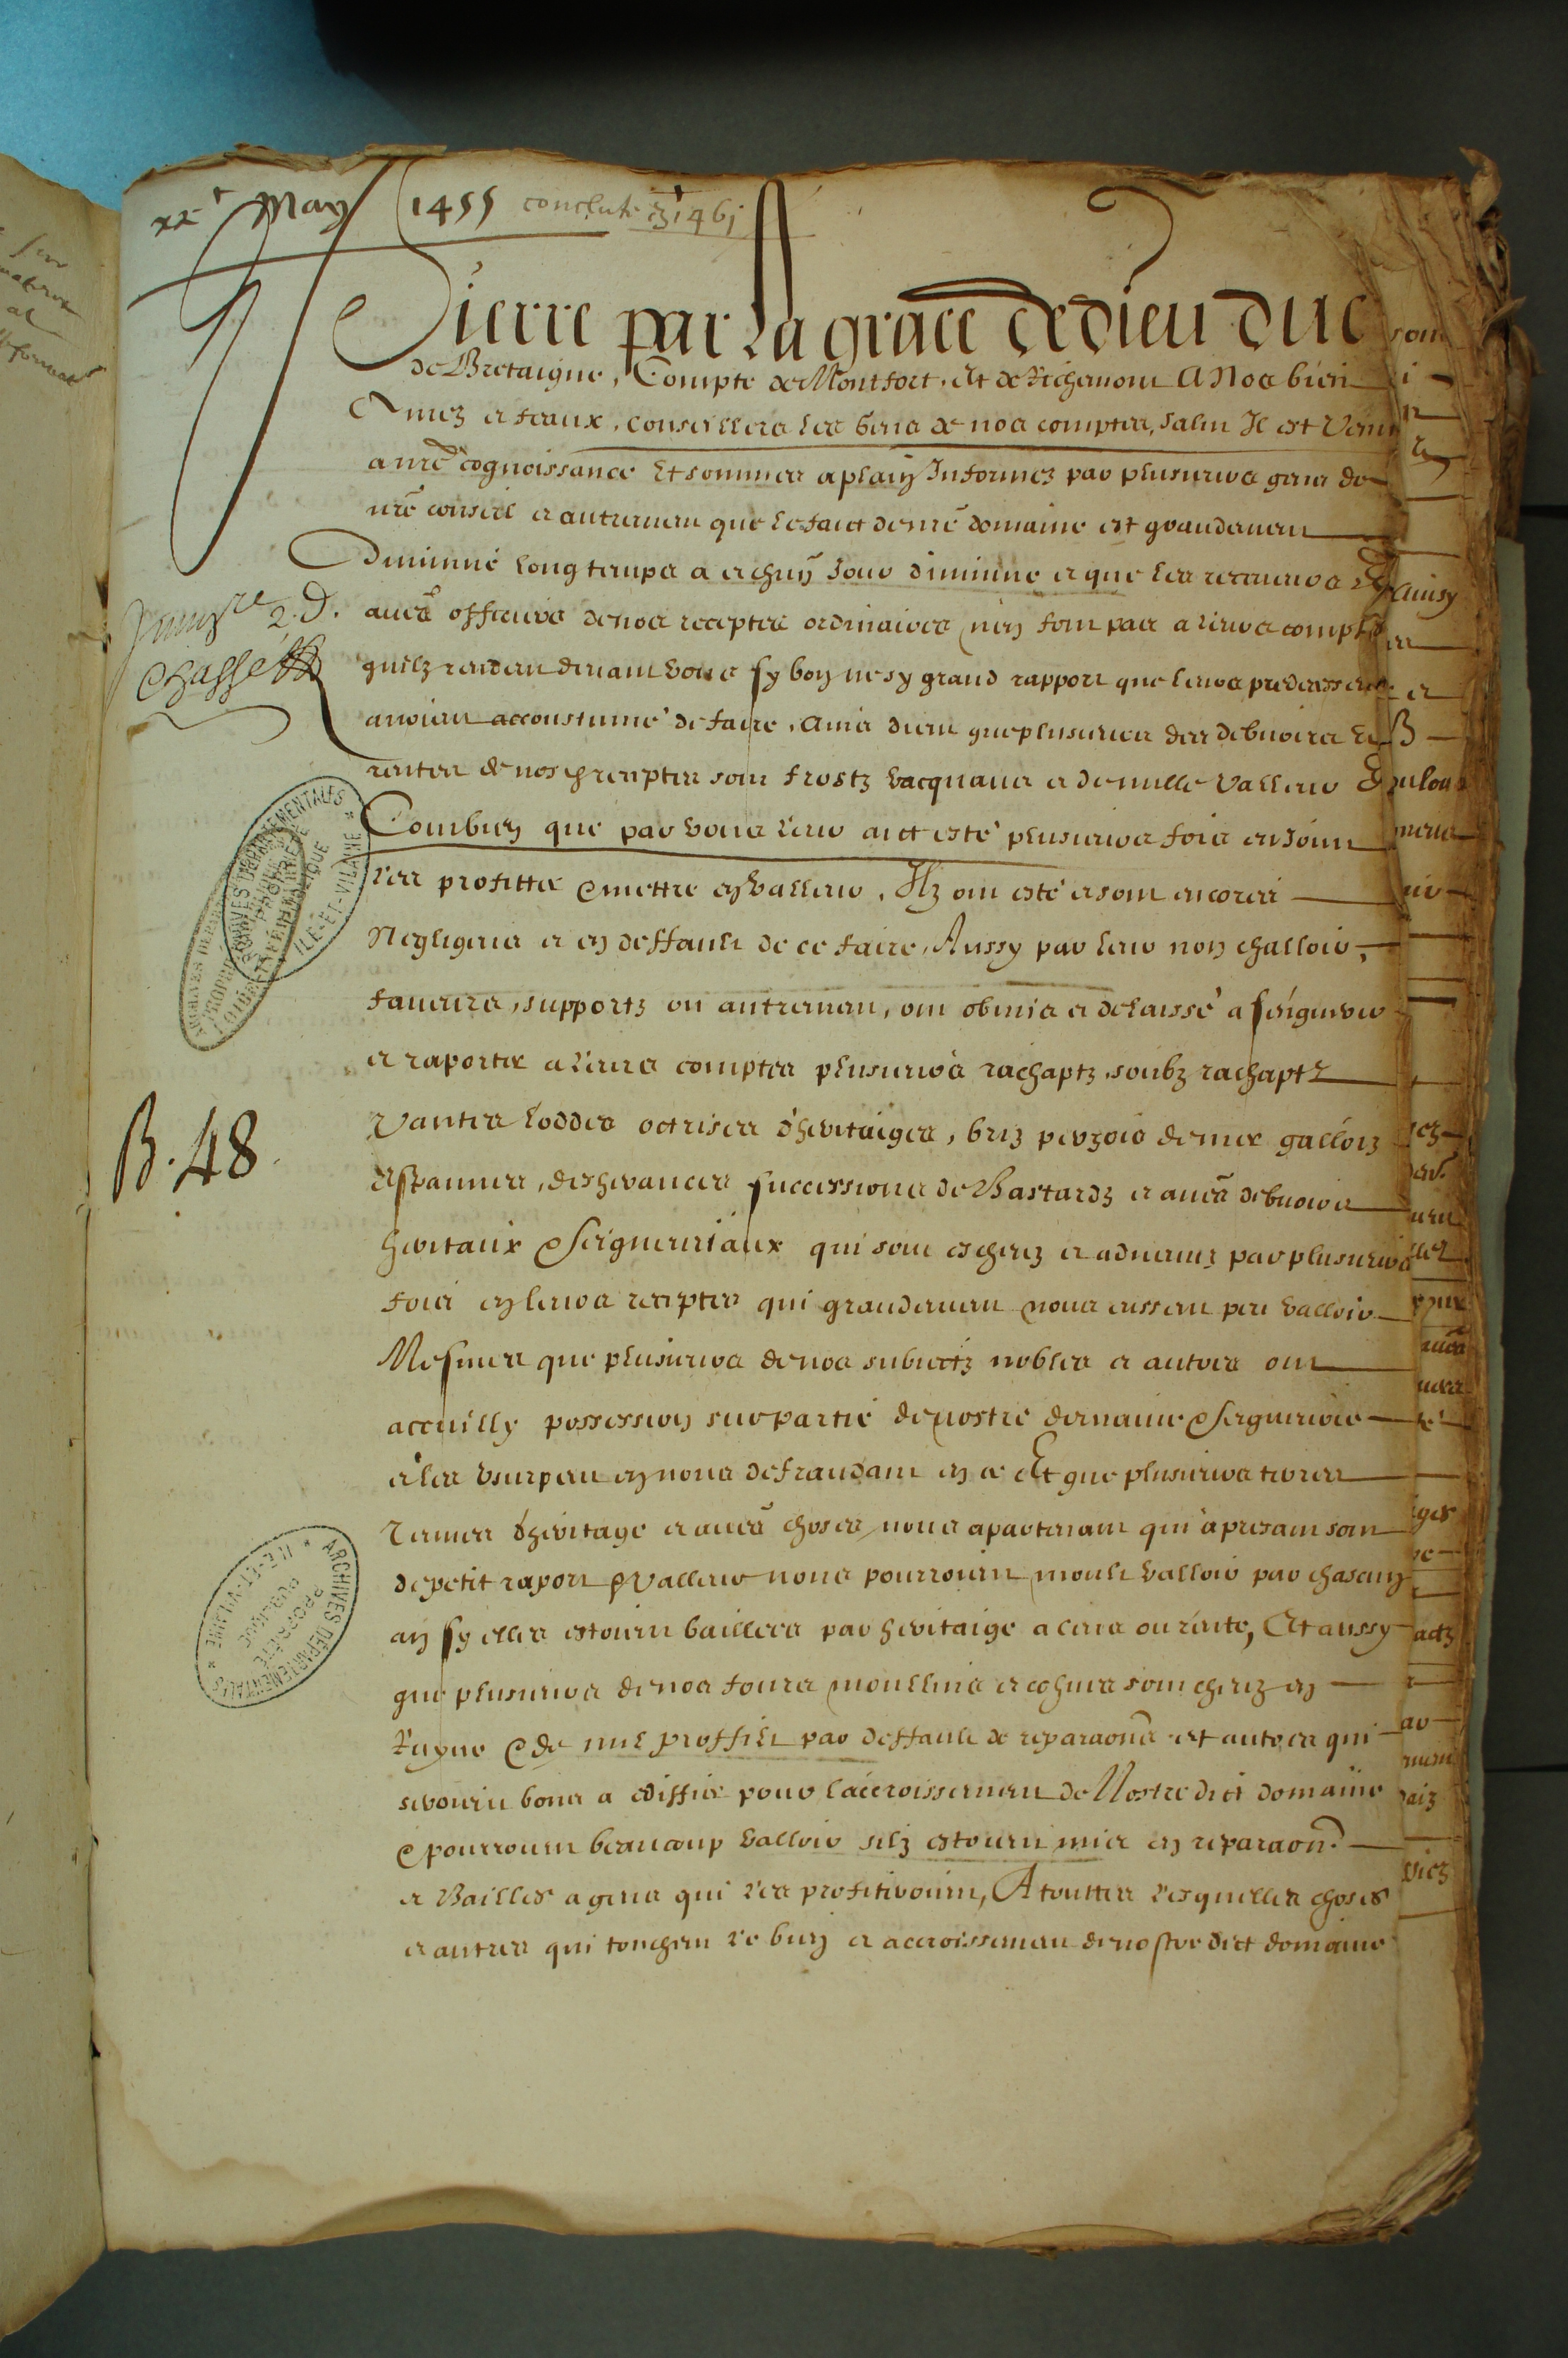 xxe May 1455 conclute 1461
Pierre par la grace de dieu duc
de Bretaigne, Compte de Montfort, et de Richemont A Nos bien
Amez et feaux, conseillers les Gens de nos comptes, salut Il est venu
a nre cognoissance Et sommes a plain Informez par plusieurs gens de
nre conseil et autrement que le faict de nre domaine est grandement
Diminué long temps a et chun jour diminue et que les receveurs et
aues officiers de nos receptes ordinaires n'en font pas a leurs comptes
quilz rendent devant vous sy bon ne sy grand rapport que leurs predecesseurs
avoient accoustumé de faire, Ains dient que plusieurs des debvoirs et
rentes de nosd receptes sont frostz vacquans et de nulle valleur Et
Combien que par vous leur aict esté plusieurs fois enjoint
les profitter & mettre en valleur, Ilz ont esté et sont encores
Negligens et en deffault de ce faire, Aussy par leur non challoir,
faveurs, supports ou autrement, ont obmis et delaissé a
et raporter a leurs comptes plusieurs rachaptz, soubz rachaptz
Vantes loddes octrises d'heritaiges, briz de mer gallois
Espaunes, desherances successions de Bastardz et aues debvoirs
heritaux & Seigneuriaux qui sont escheuz et advenuz par plusieurs
fois en leurs receptes qui grandement nous eussent peu valloir
Mesmes que plusieurs de nos subiectz nobles et autres ont
accuilly possession sur partie de nostre demaine & seigneurie
et les usurpent en nous defraudant en ce Et que plusieurs terres
Tenues d'heritage et aues choses nous apartenant qui apresant sont
de petit raport & valleur nous pourroint moult valloir par chascun
an sy elles estoint baillees par heritaige a cens ou rente, Et aussy
que plusieurs de nos fours moullins et cohues sont cheuz en
Ruyne & de nul proffilt par deffault de reparaons et autres qui
seroint bons a ediffier pour laccroissement de Nostre dict domaine
& pourroint beaucoup valloir silz estoint mis en reparaon
et Bailles a gens qui les profiteroint, A touttes lesquelles choses
et autres qui touchent le bien et accroissement de nostre dict domaine
2. D.
Chasse
B. 48.
ARCHIVES DÉPARTEMENTALES
PROPRIÉTÉ PUBLIQUE
ILE-ET-VILAINE
ARCHIVES DÉPARTEMENTALES
PROPRIÉTÉ PUBLIQUE
ILE-ET-VILAINE